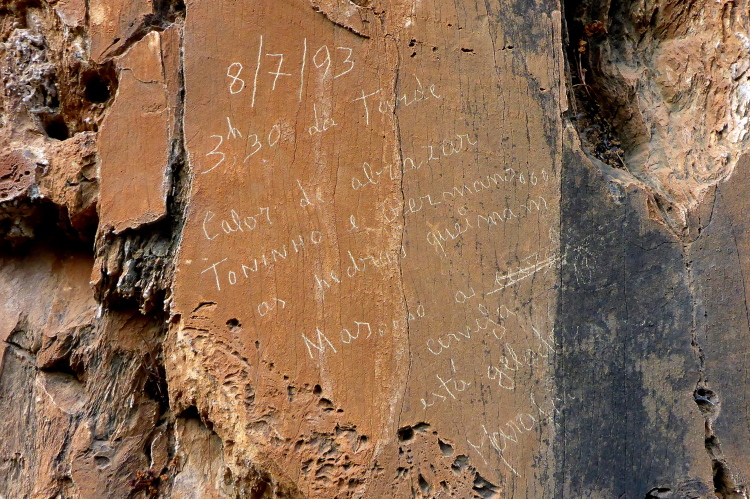 8/7/93
3h 30 da Tarde
Calor de abrazar
TONINHO e Germano
as pedras queimam
Mas as
cerveja
está gelada